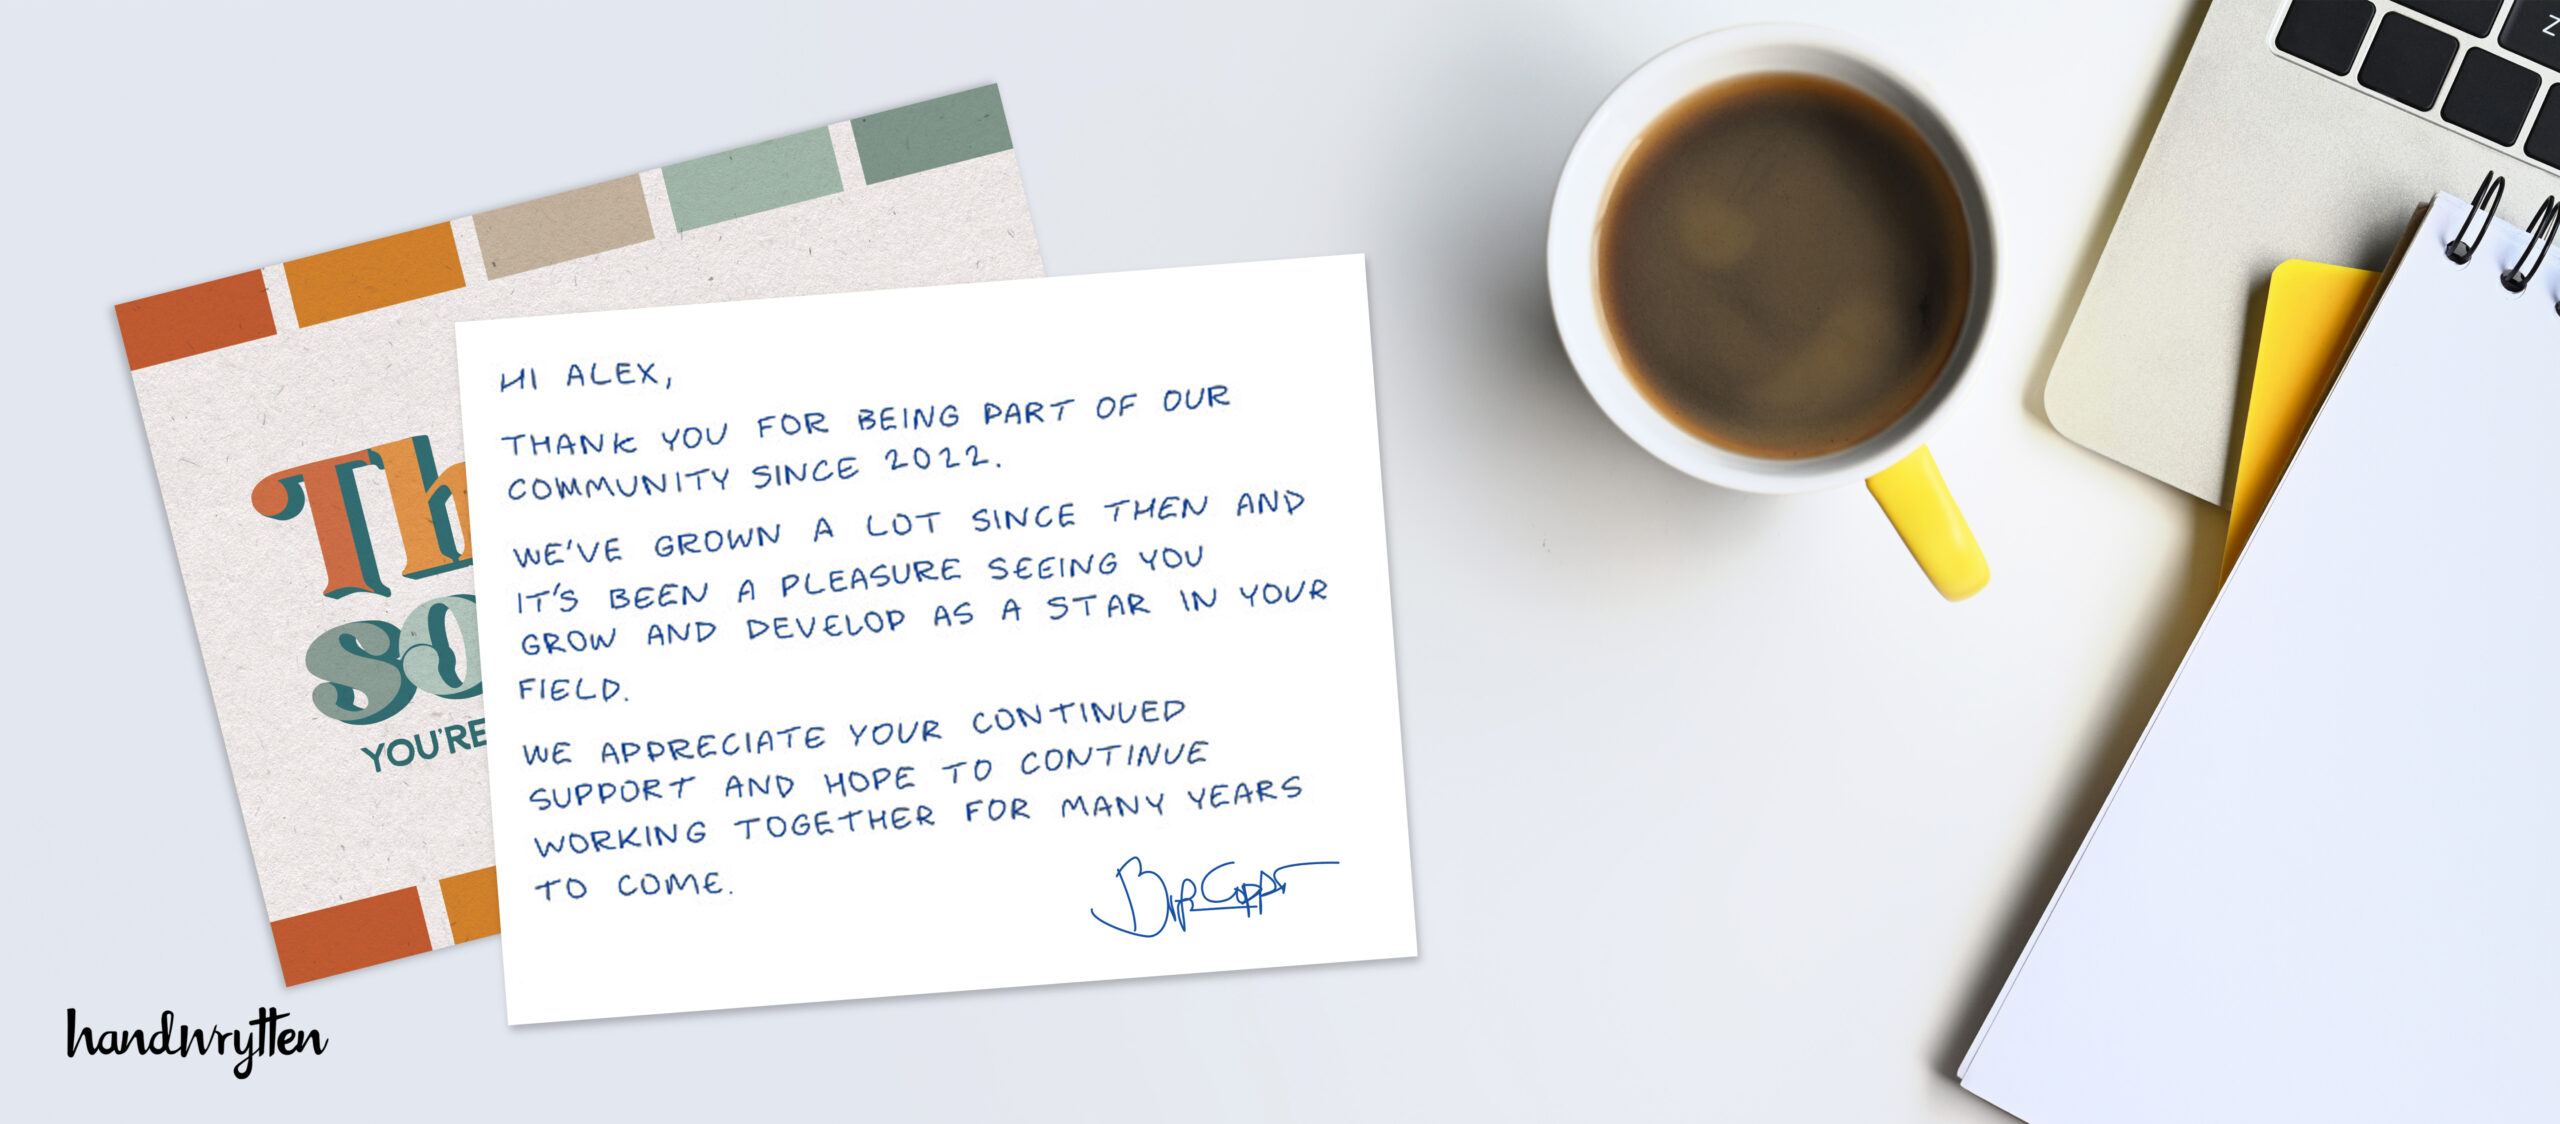 Th
so
YOU'RE
HI ALEX,
THANK YOU FOR BEING PART OF OUR
COMMUNITY SINCE 2022.
WE'VE GROWN A LOT SINCE THEN AND
IT'S BEEN A PLEASURE SEEING YOU
GROW AND DEVELOP AS A STAR IN YOUR
FIELD.
WE APPRECIATE YOUR CONTINUED
SUPPORT AND HOPE TO CONTINUE
WORKING TOGETHER FOR MANY YEARS
TO COME.
handwrytten
Z